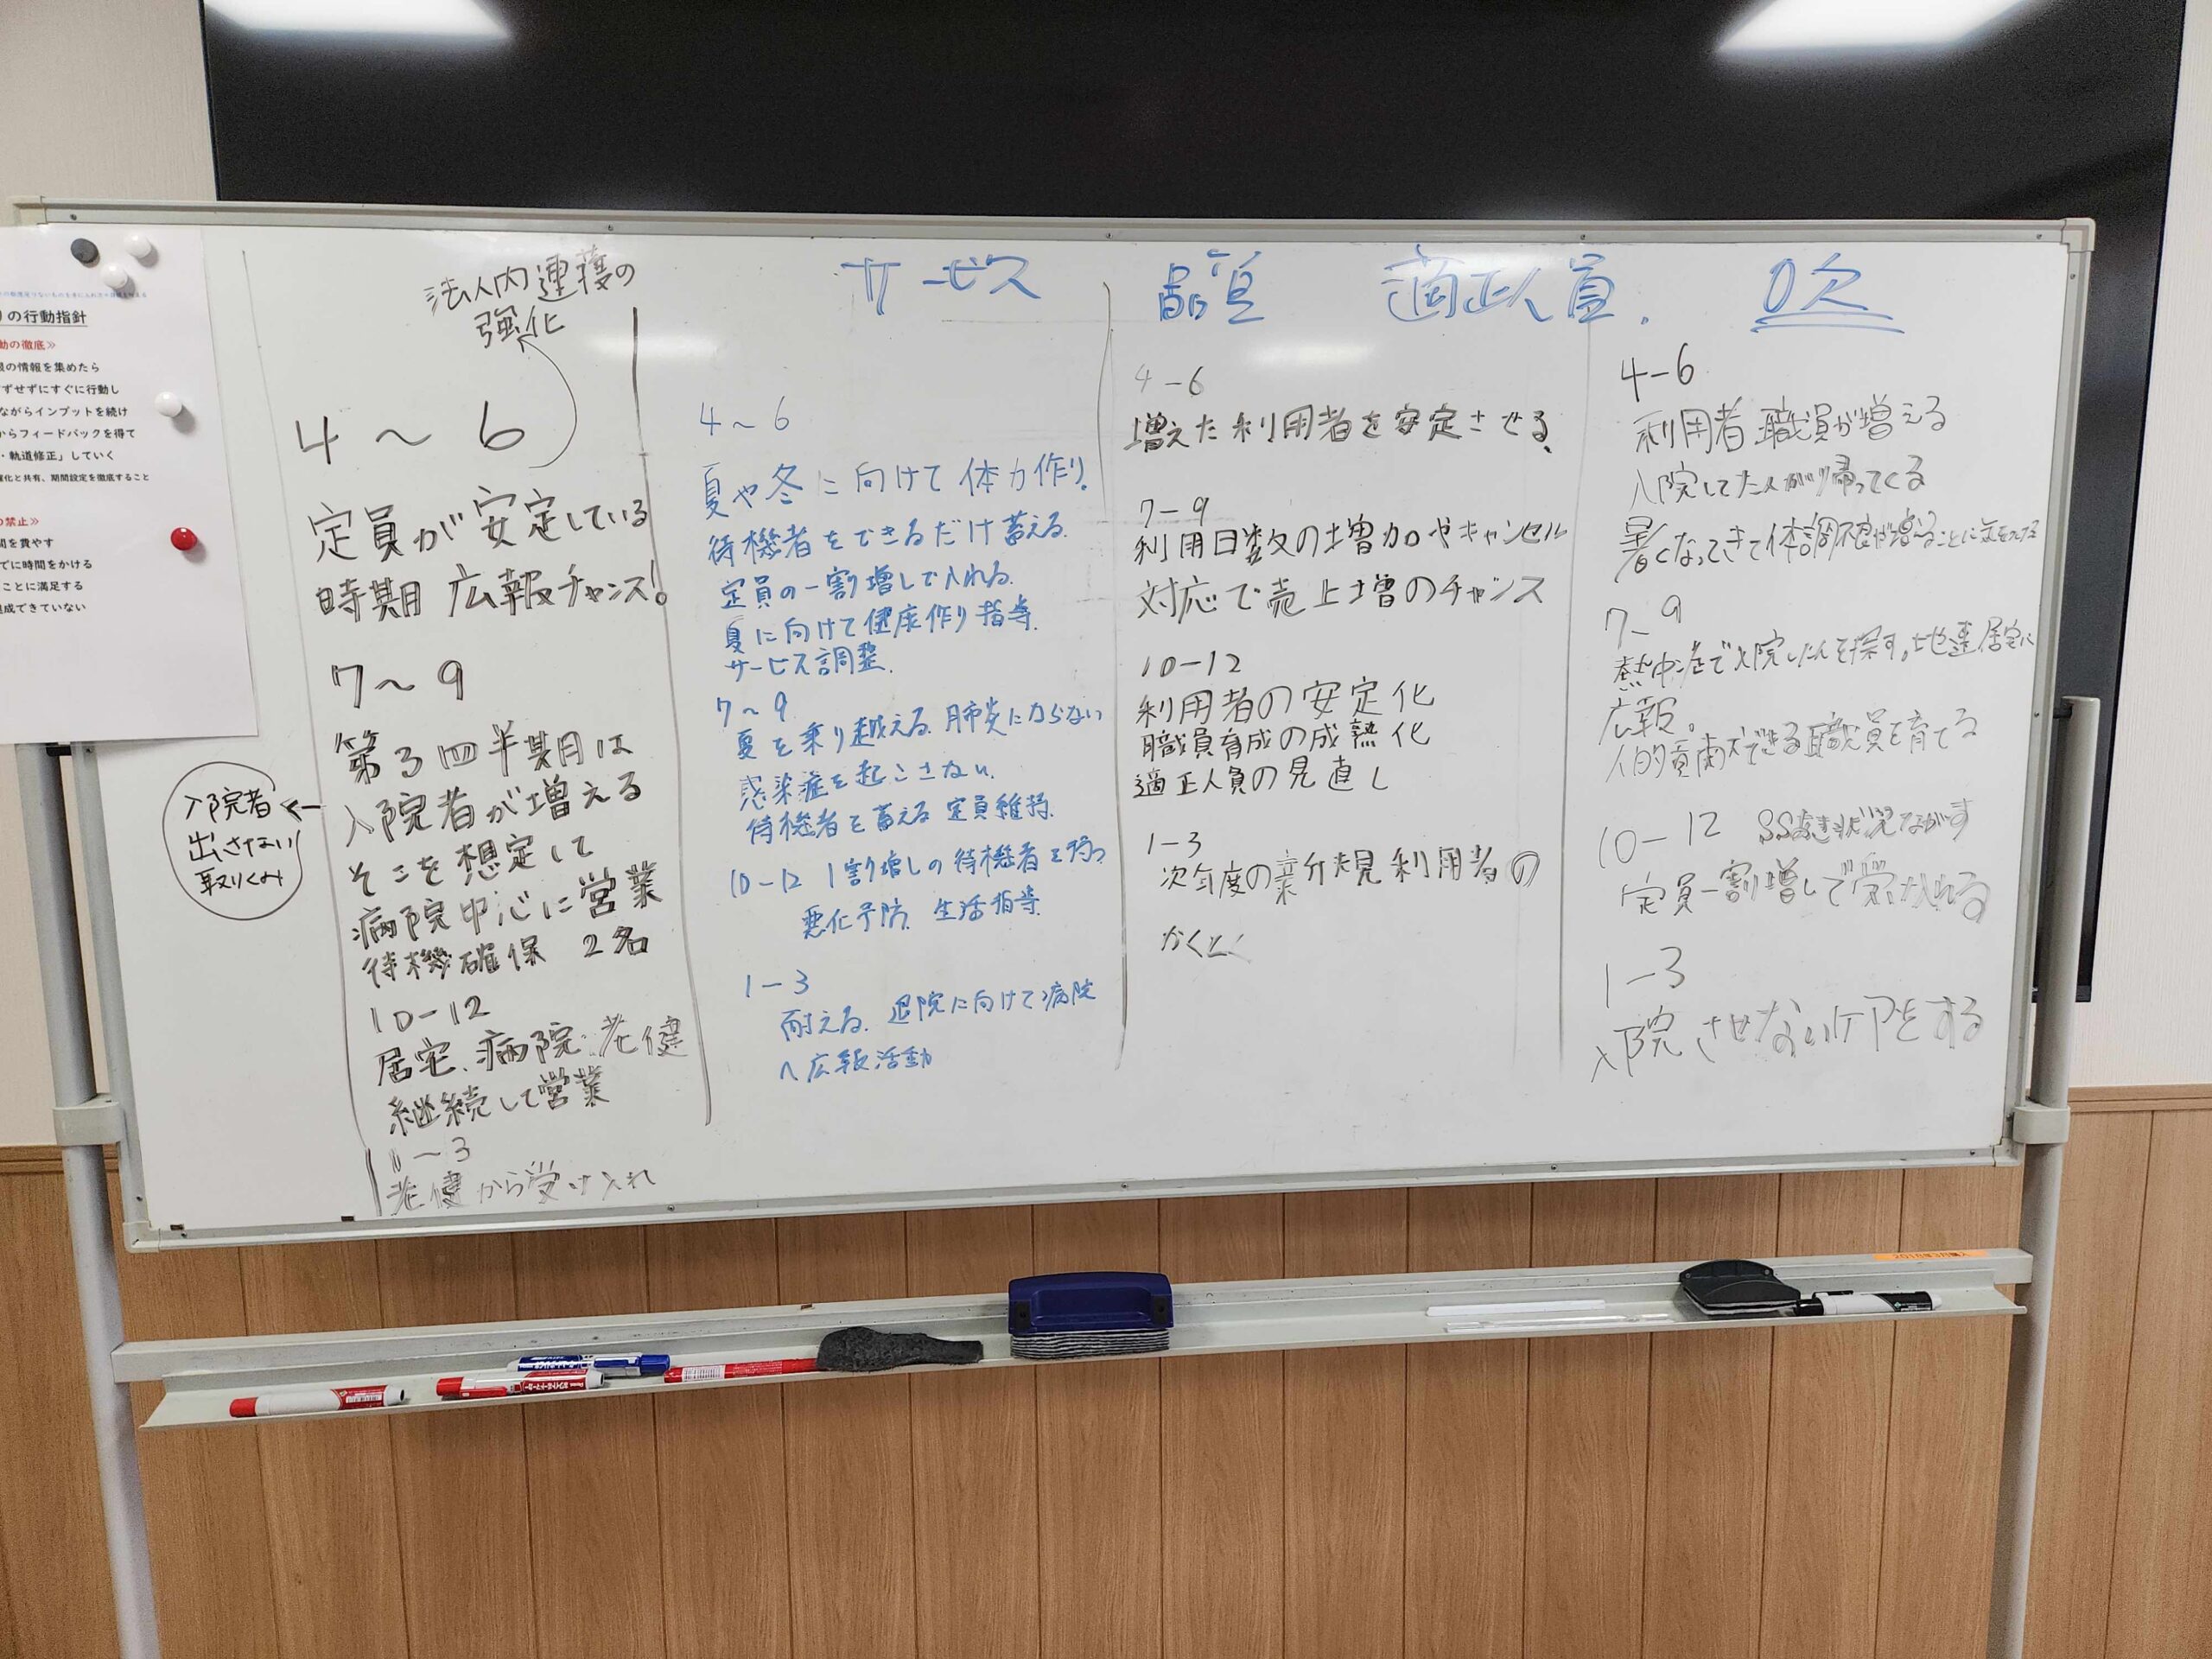 の行動指針
動の徹底≫
限の情報を集めたら
ずせずにすぐに行動し
ながらインプットを続け
からフィードバックを得て
・軌道修正」していく
確化と共有、期間設定を徹底すること
の禁止≫
間を費やす
でに時間をかける
ことに満足する
達成できていない
法人内連携の
強化
4〜6
定員が安定している
時期 広報チャンス!
7〜9
第3四半期は
入院者が増える
そこを想定して
病院中心に営業
待機確保 2名
入院者
出さない
取りくみ
10-12
居宅、病院、老健
継続して営業
1〜3
老健から受け入れ
サービス 品質 適正人員. 0次
4〜6
夏や冬に向けて体力作り.
待機者をできるだけ蓄える.
定員の一割増しで入れる.
夏に向けて健康作り指導.
サービス調整.
7〜9
夏を乗り越える. 肺炎にならない
感染症を起こさない.
待機者を蓄える 定員維持.
10-12 1割増しの待機者を持つ
悪化予防. 生活指導.
1-3
耐える. 退院に向けて病院
へ広報活動
4-6
増えた利用者を安定させる、
7-9
利用日数の増加やキャンセル
対応で売上増のチャンス
10-12
利用者の安定化
職員育成の成熟化
適正人員の見直し
1-3
次年度の新規利用者の
かくとく
4-6
利用者 職員が増える
入院してた人が帰ってくる
暑くなってきて体調不良が増えることに気をつける
7-9
熱中症で入院した人を探す。地連 居宅に
広報。
人的貢献できる職員を育てる
10-12 SS空き状況ながす
定員一割増しで受け入れる
1-3
入院させないケアをする